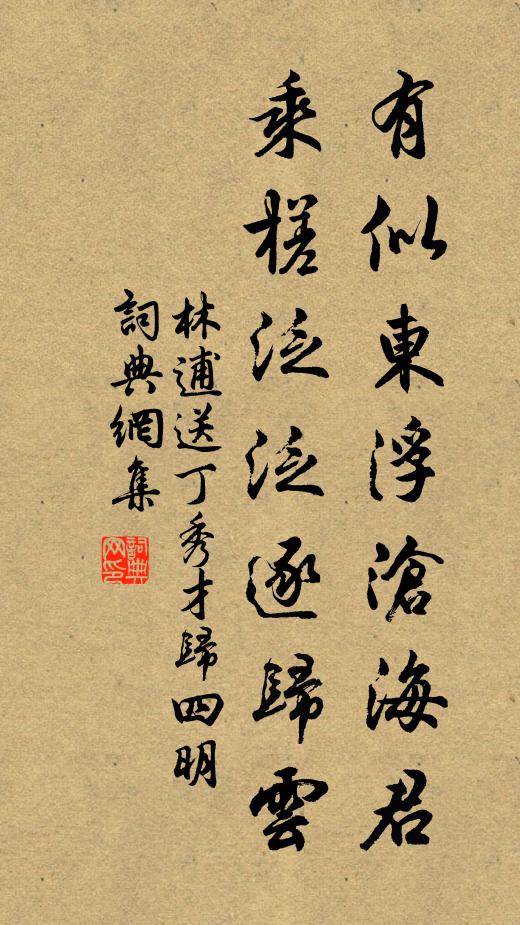 有似東浮滄海君
乘槎泛泛逐歸雲
林逋送丁秀才歸四明
詞典網集
詞典網印